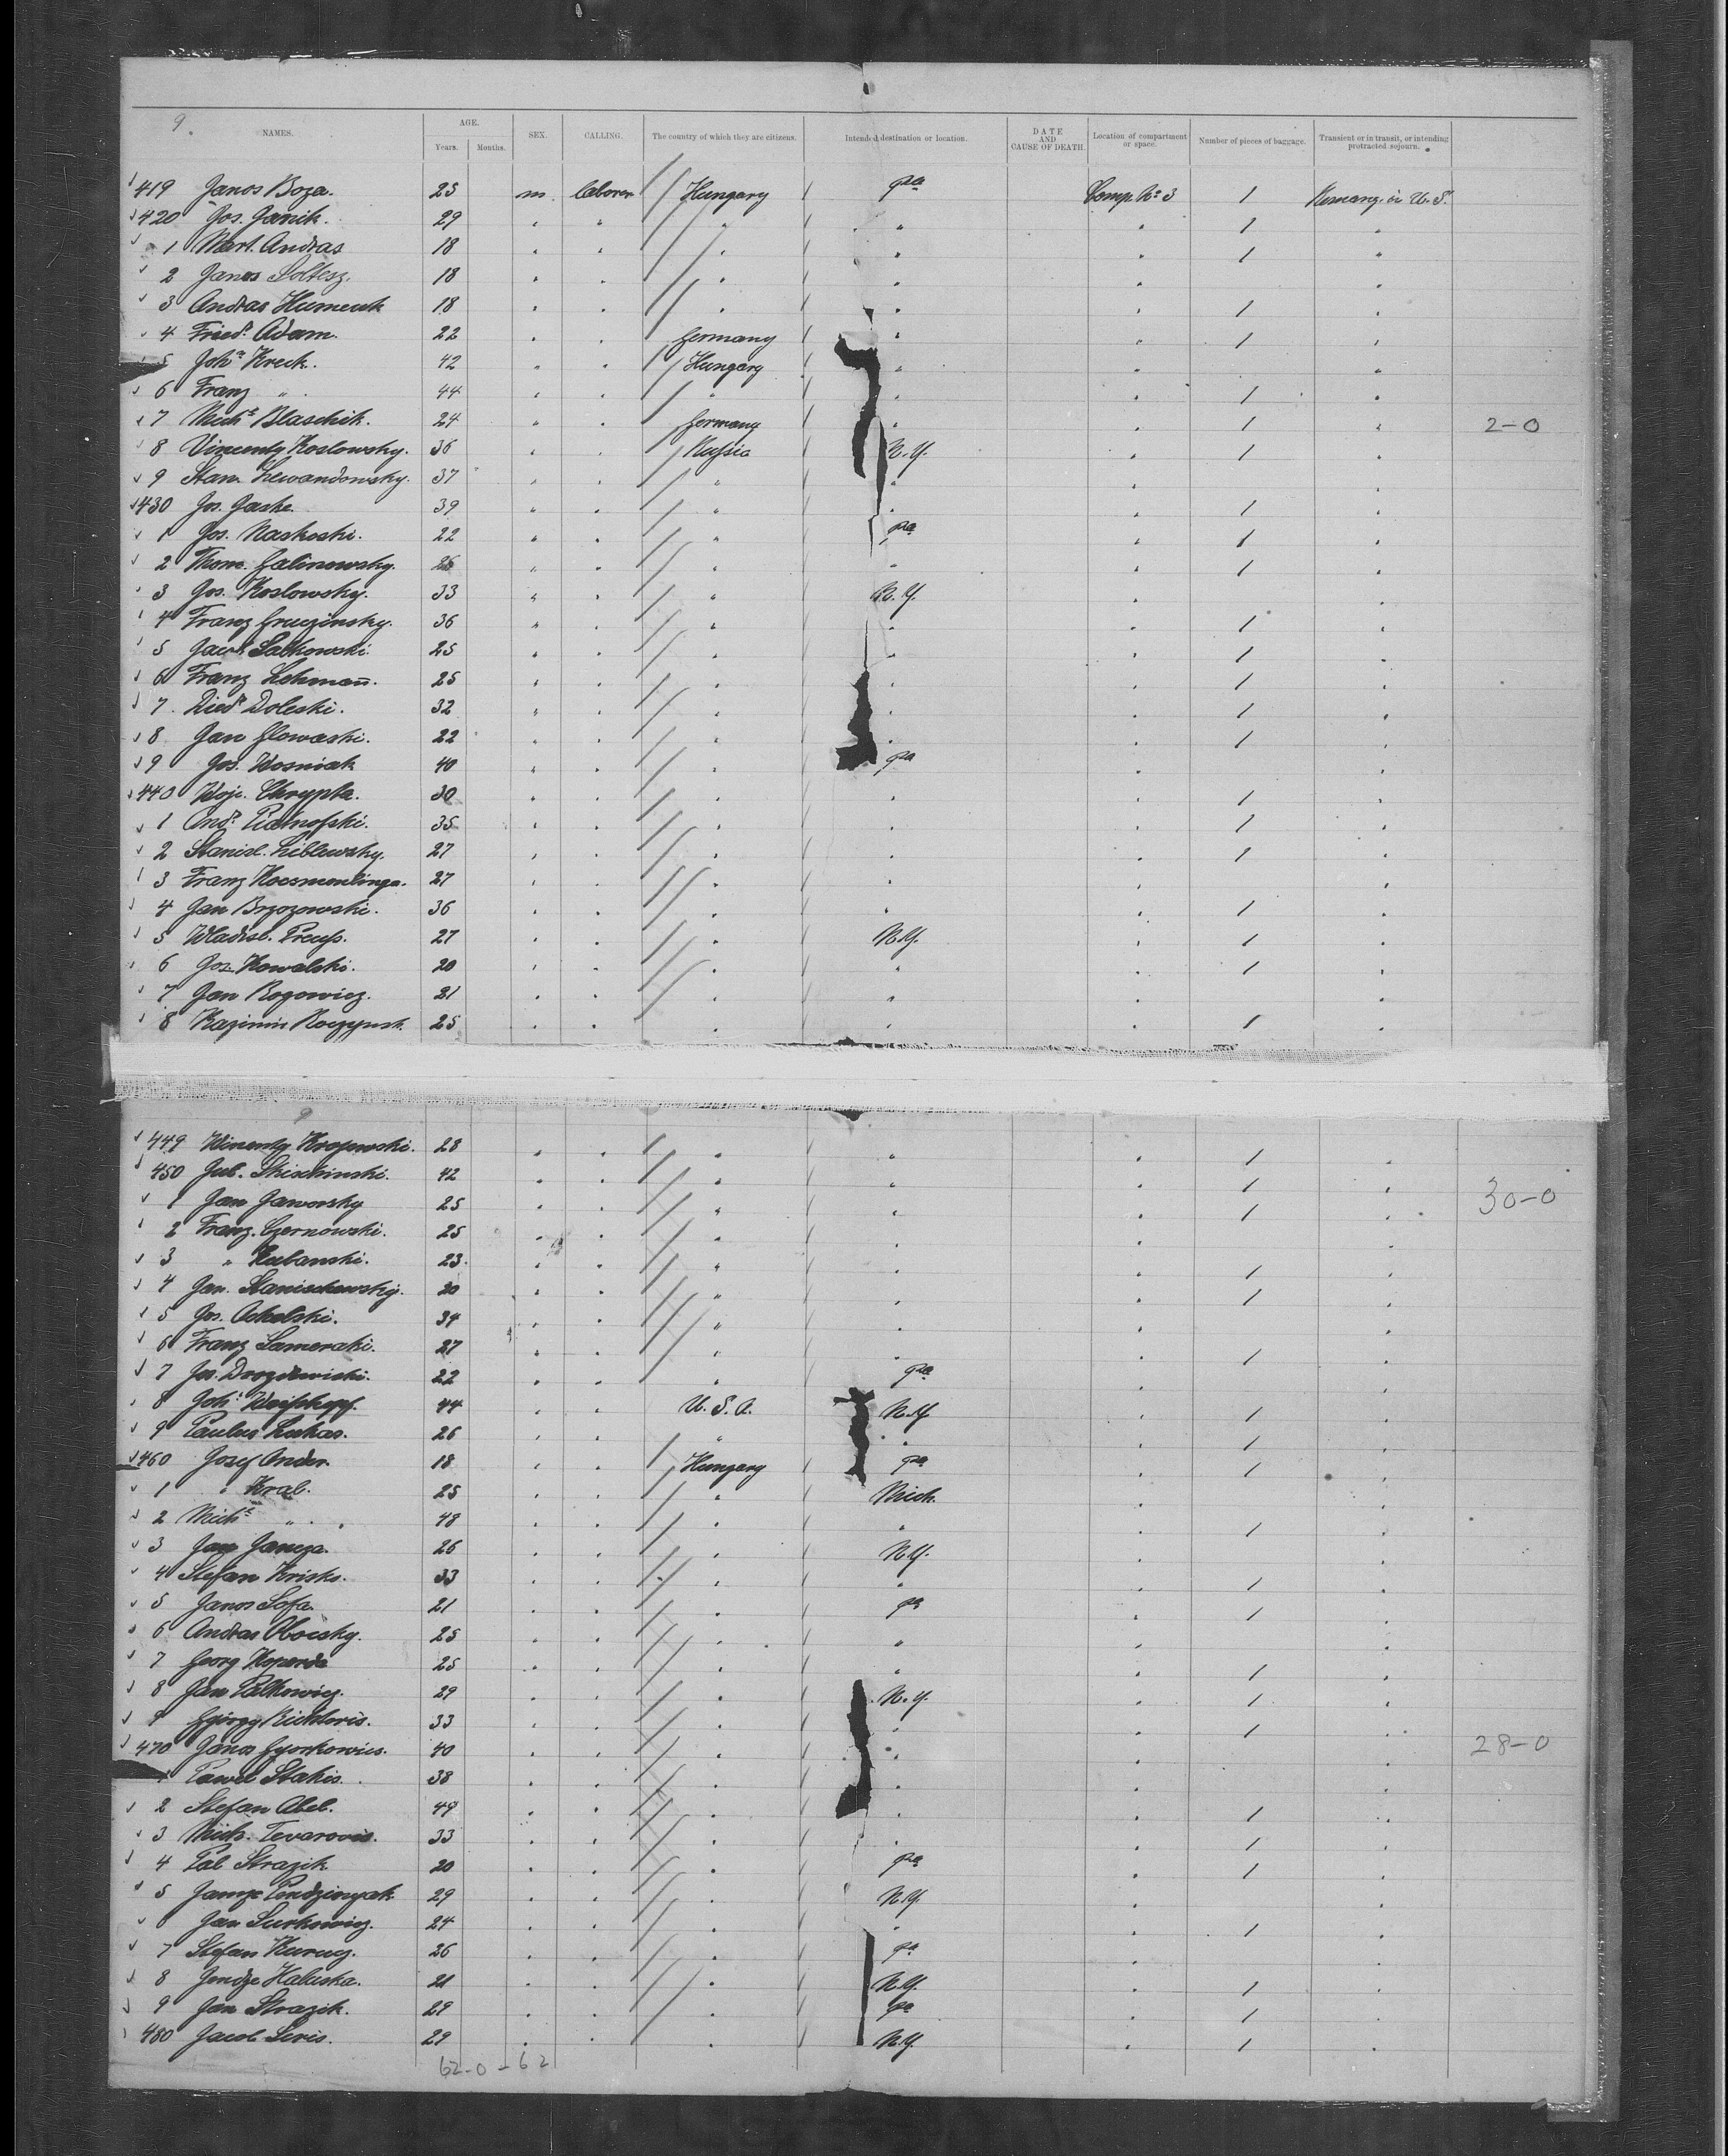 9.
NAMES. AGE. Years. Months. SEX. CALLING. The country of which they are citizens. Intended destination or location. DATE AND CAUSE OF DEATH. Location of compartment or space. Number of pieces of baggage. Transient or in transit, or intending protracted sojourn.
419 Janos Boza. 25 m. laborer Hungary pa Comp. No 3 1 in U.S.
420 Jos. Janik. 29 " " " " " 1 "
1 Mart. Andras 18 " " " " " 1 "
2 Janos Soltesz. 18 " " " " " "
3 Andras 18 " " " " " 1 "
4 Fried. Adam. 22 " " Germany " " 1 "
5 Joh. Kreck. 42 " " Hungary " " "
6 Franz " 44 " " " " " 1 "
7 Mich. Blaschik. 24 " " Germany " " 1 " 2-0
8 Vincenty Koslowsky. 36 " " Russia N.Y. " 1 "
9 Stan. Lewandowsky. 37 " " " " " "
430 Jos. 39 " " " " " 1 "
1 Jos. Naskoski. 22 " " " pa " 1 "
2 Thom. Galinowsky. " " " " " 1 "
3 Jos. Koslowsky. 33 " " " N.Y. " "
4 Franz Gruczinsky. 36 " " " " " 1 "
5 Jacob Salkowski. 25 " " " " " 1 "
6 Franz Lehmañ. 25 " " " " " 1 "
7 Doleski. 32 " " " " " 1 "
8 Jan Glowaski. 22 " " " " " 1 "
9 Jos. Wosniak 40 " " " pa " "
440 Woje. Chrypta. 30 " " " " " 1 "
1 And. 35 " " " " " 1 "
2 Stanisl. 27 " " " " " 1 "
3 Franz 27 " " " " " "
4 Jan Brzozowski. 36 " " " " " 1 "
5 Wladisl. Preuss. 27 " " " N.Y. " 1 "
6 Jos. Kowalski. 20 " " " " " 1 "
7 Jan Rogowicz. 21 " " " " " "
8 Kazimir 25 " " " " " 1 "
9
449 Winenty Krajewski. 28 " " " " " 1 "
450 Jul. 42 " " " " " 1 " 30-0
1 Jan Jaworsky 25 " " " " " 1 "
2 Franz. Czernowski. 25 " " " " " "
3 " Kubanski. 23 " " " " " 1 "
4 Jan. Stanischewsky. 20 " " " " " 1 "
5 Jos. 34 " " " " " "
6 Franz Sameraki. 27 " " " " " 1 "
7 Jos. 22 " " " pa " "
8 Joh. Weisskopf. 44 " " U.S.A. N.Y. " 1 "
9 Paulus Lukas. 26 " " " " " 1 "
460 Josef Ander. 18 " " Hungary pa " 1 "
1 " Kral. 25 " " " Mich. " "
2 Mich. " 48 " " " " " 1 "
3 Jan 26 " " " N.Y. " "
4 Stefan Krisko. 33 " " " " " 1 "
5 Janos Sofa. 21 " " " pa " 1 "
6 Andras 25 " " " " " "
7 Georg Koperda 25 " " " " " 1 "
8 Jan Palkowicz. 29 " " " N.Y. " 1 "
9 György 33 " " " " " 1 "
470 Janos Gyorkowics. 40 " " " " " " 28-0
Pawel Stakis. 38 " " " " " "
2 Stefan Abel. 49 " " " " " 1 "
3 Mich. Tevarovis. 33 " " " " " 1 "
4 Pal Strazik 20 " " " pa " 1 "
5 29 " " " N.Y. " "
6 Jan Surkowicz. 24 " " " " " 1 "
7 Stefan Kurucz. 26 " " " pa " "
8 Haluska. 21 " " " N.Y. " 1 "
9 Jan Strazik. 29 " " " pa " 1 "
480 Jacob Seris. 29 " " " N.Y. " 1 "
62-0-62